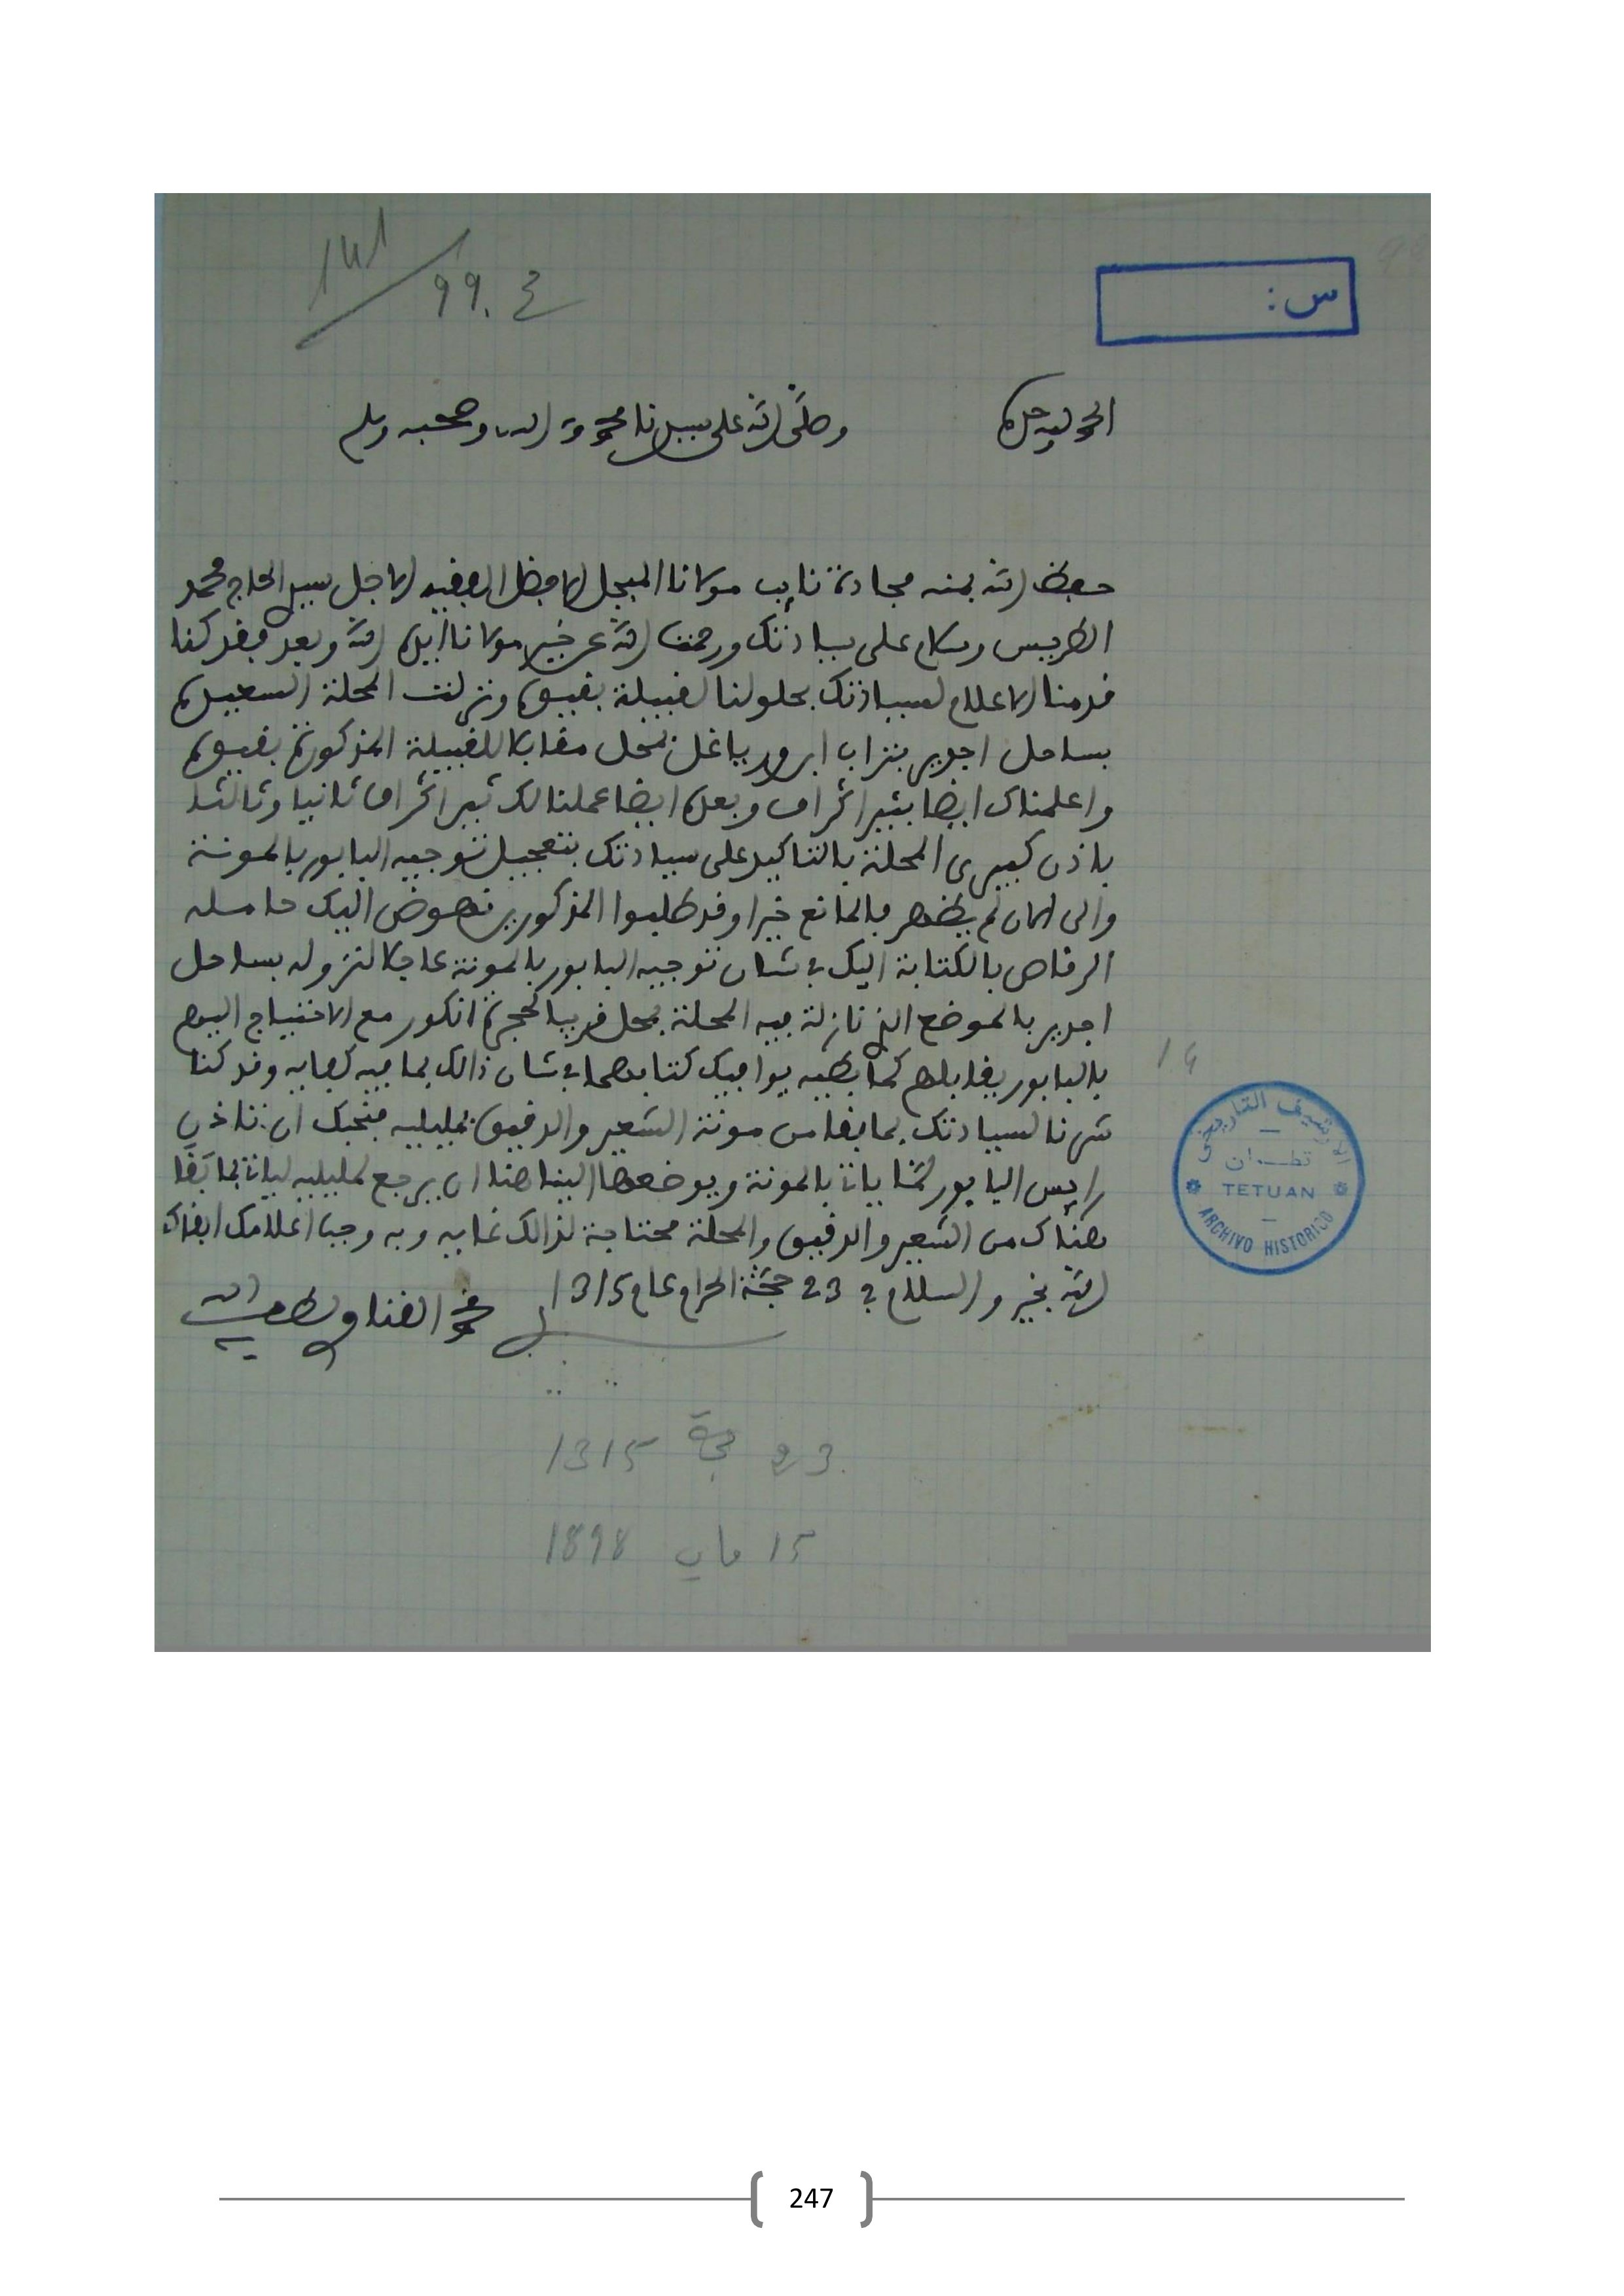 141
99. ع
س:
الحمد لله وحده
وصلى الله على سيدنا محمد وآله وصحبه وسلم
حفظ الله بمنه مجادة نايب مولانا المبجل الافضل الفقيه الاجل سيدي الحاج محمد
الطريس وسلام على سيادتك ورحمت الله عن خير مولانا ايده الله وبعد فقد كنا
قدمنا الاعلام لسيادتك بحلولنا لقبيلة بقيوة ونزلت المحلة السعيدة
بساحل اجدير بتراب ابن ورياغل بمحل مقابلا للقبيلة المذكورة بقيوة
واعلمناك ايضا اخراف وبعده ايضا عملنا لك اخراف ثانيا وثالثا
باذن كبيرى المحلة بالتاكيد على سيادتك بتعجيل توجيه البابور بالمونة
والى الان لم يظهر خبرا وقد طلبوا المذكورين نهوض اليك حامله
الرقاص بالكتابة اليك في شان توجيه البابور بالمونة عاجلا لنزوله بساحل
اجدير بالموضع الذي نازلة فيه المحلة بمحل قريبا لحجرة انكور مع الاحتياج اليوم
بالبابور يقابلهم كما يوافيك كتابهما في شان ذالك بما فيه كفايه وقد كنا
شرنا لسيادتك بما بقا من مونة الشعير والدقيق بمليليه فنحبك ان تاذن
رايس البابور لمنا ياتا بالمونة ويوضعها الينا هنا ان يرجع لمليليه لياتا بما بقا
هناك من الشعير والدقيق والمحلة محتاجة لذالك غايه وبه وجب اعلامك ابقاك
الله بخير والسلام في 23 حجة الحرام عام 1315
محمد القناوي لطف الله به
23 حجة 1315
15 ماي 1898
14
الارشيف التاريخي
تطوان
TETUAN
ARCHIVO HISTORICO
247